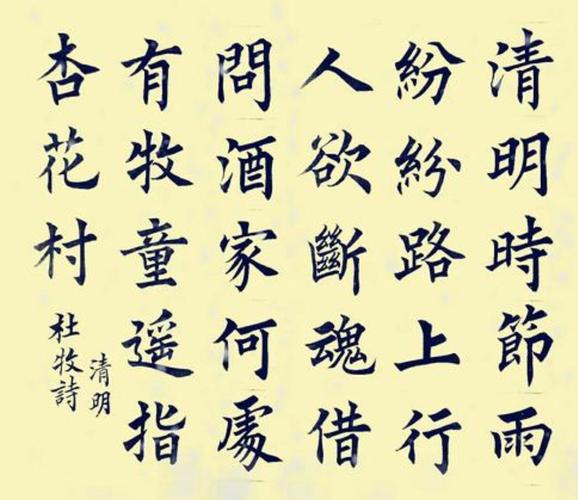 清明時節雨
紛紛路上行
人欲斷魂借
問酒家何處
有牧童遥指
杏花村
清明
杜牧詩